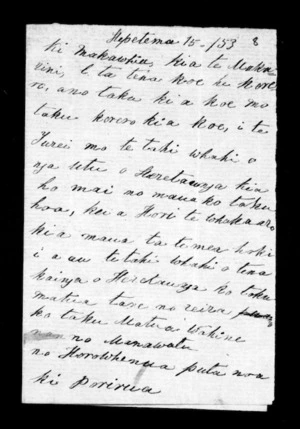 Hepetema 15 - /53 8
ki Makawhiu, kia te Maka
rini, e ta tena koe he kore
ro, ano taku ki a koe mo
taku korero kia koe, i te
Turei mo te tahi whahi o
nga utu o Heretaunga kia
ho mai no maua ko taku
hoa, kei a Hori te whakaaro
ki a maua ta te mea hoki
i a au te tahi whahi o tena
kainga o Heretaunga ko taku
matua tane no reira
ko taku Matua Wahine
no Manawatu
no Horowhenua puta noa
ki Porirua